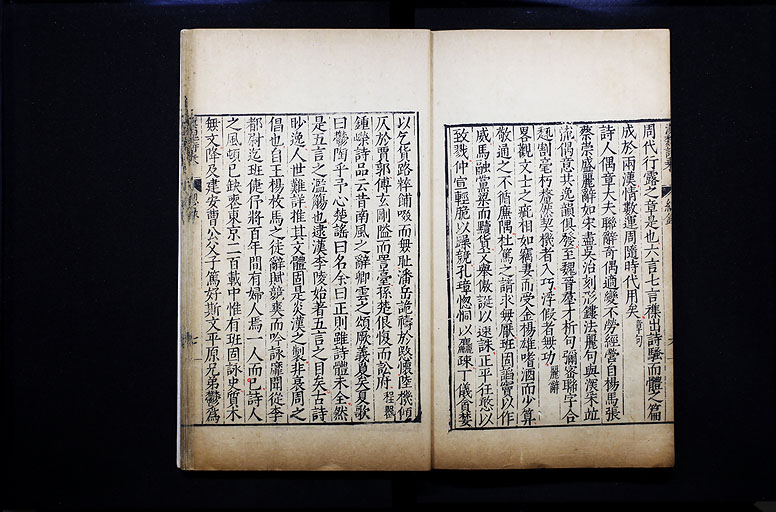 周代行露之章是也六言七言襍出詩騷而體之篇
成於兩漢情數運周隨時代用矣章句
詩人偶章大夫聯辭奇偶適變不勞經營自楊馬張
蔡崇盛麗辭如宋畫吳冶刻形鏤法麗句與深采竝
流偶意共逸韻俱發至魏晉羣才析句彌密聯字合
趣割毫析釐然契機者入巧浮假者無功麗辭
畧觀文士之疵相如竊妻而受金楊雄嗜酒而少算
敬通之不循廉隅杜篤之請求無厭班固謟竇以作
威馬融黨梁而黷貨文舉傲誕以速誅正平狂憨以
致戮仲宣輕脆以躁競孔璋惚恫以麤疎丁儀貪婪
以乞貨路粹餔啜而無耻潘岳詭禱於愍懷陸機傾
仄於賈郭傅玄剛隘而詈臺孫楚佷愎而訟府程器
鍾嶸詩品云昔南風之辭卿雲之頌厥義夐矣夏歌
曰鬱陶乎予心楚謠曰名余曰正則雖詩體未全然
是五言之濫觴也逮漢李陵始著五言之目矣古詩
眇邈人世難詳推其文體固是炎漢之製非衰周之
倡也自王楊枚馬之徒辭賦競爽而吟詠靡聞從李
都尉迄班倢伃將百年間有婦人焉一人而已詩人
之風頓已缺喪東京二百載中惟有班固詠史質木
無文降及建安曹公父子篤好斯文平原兄弟鬱為